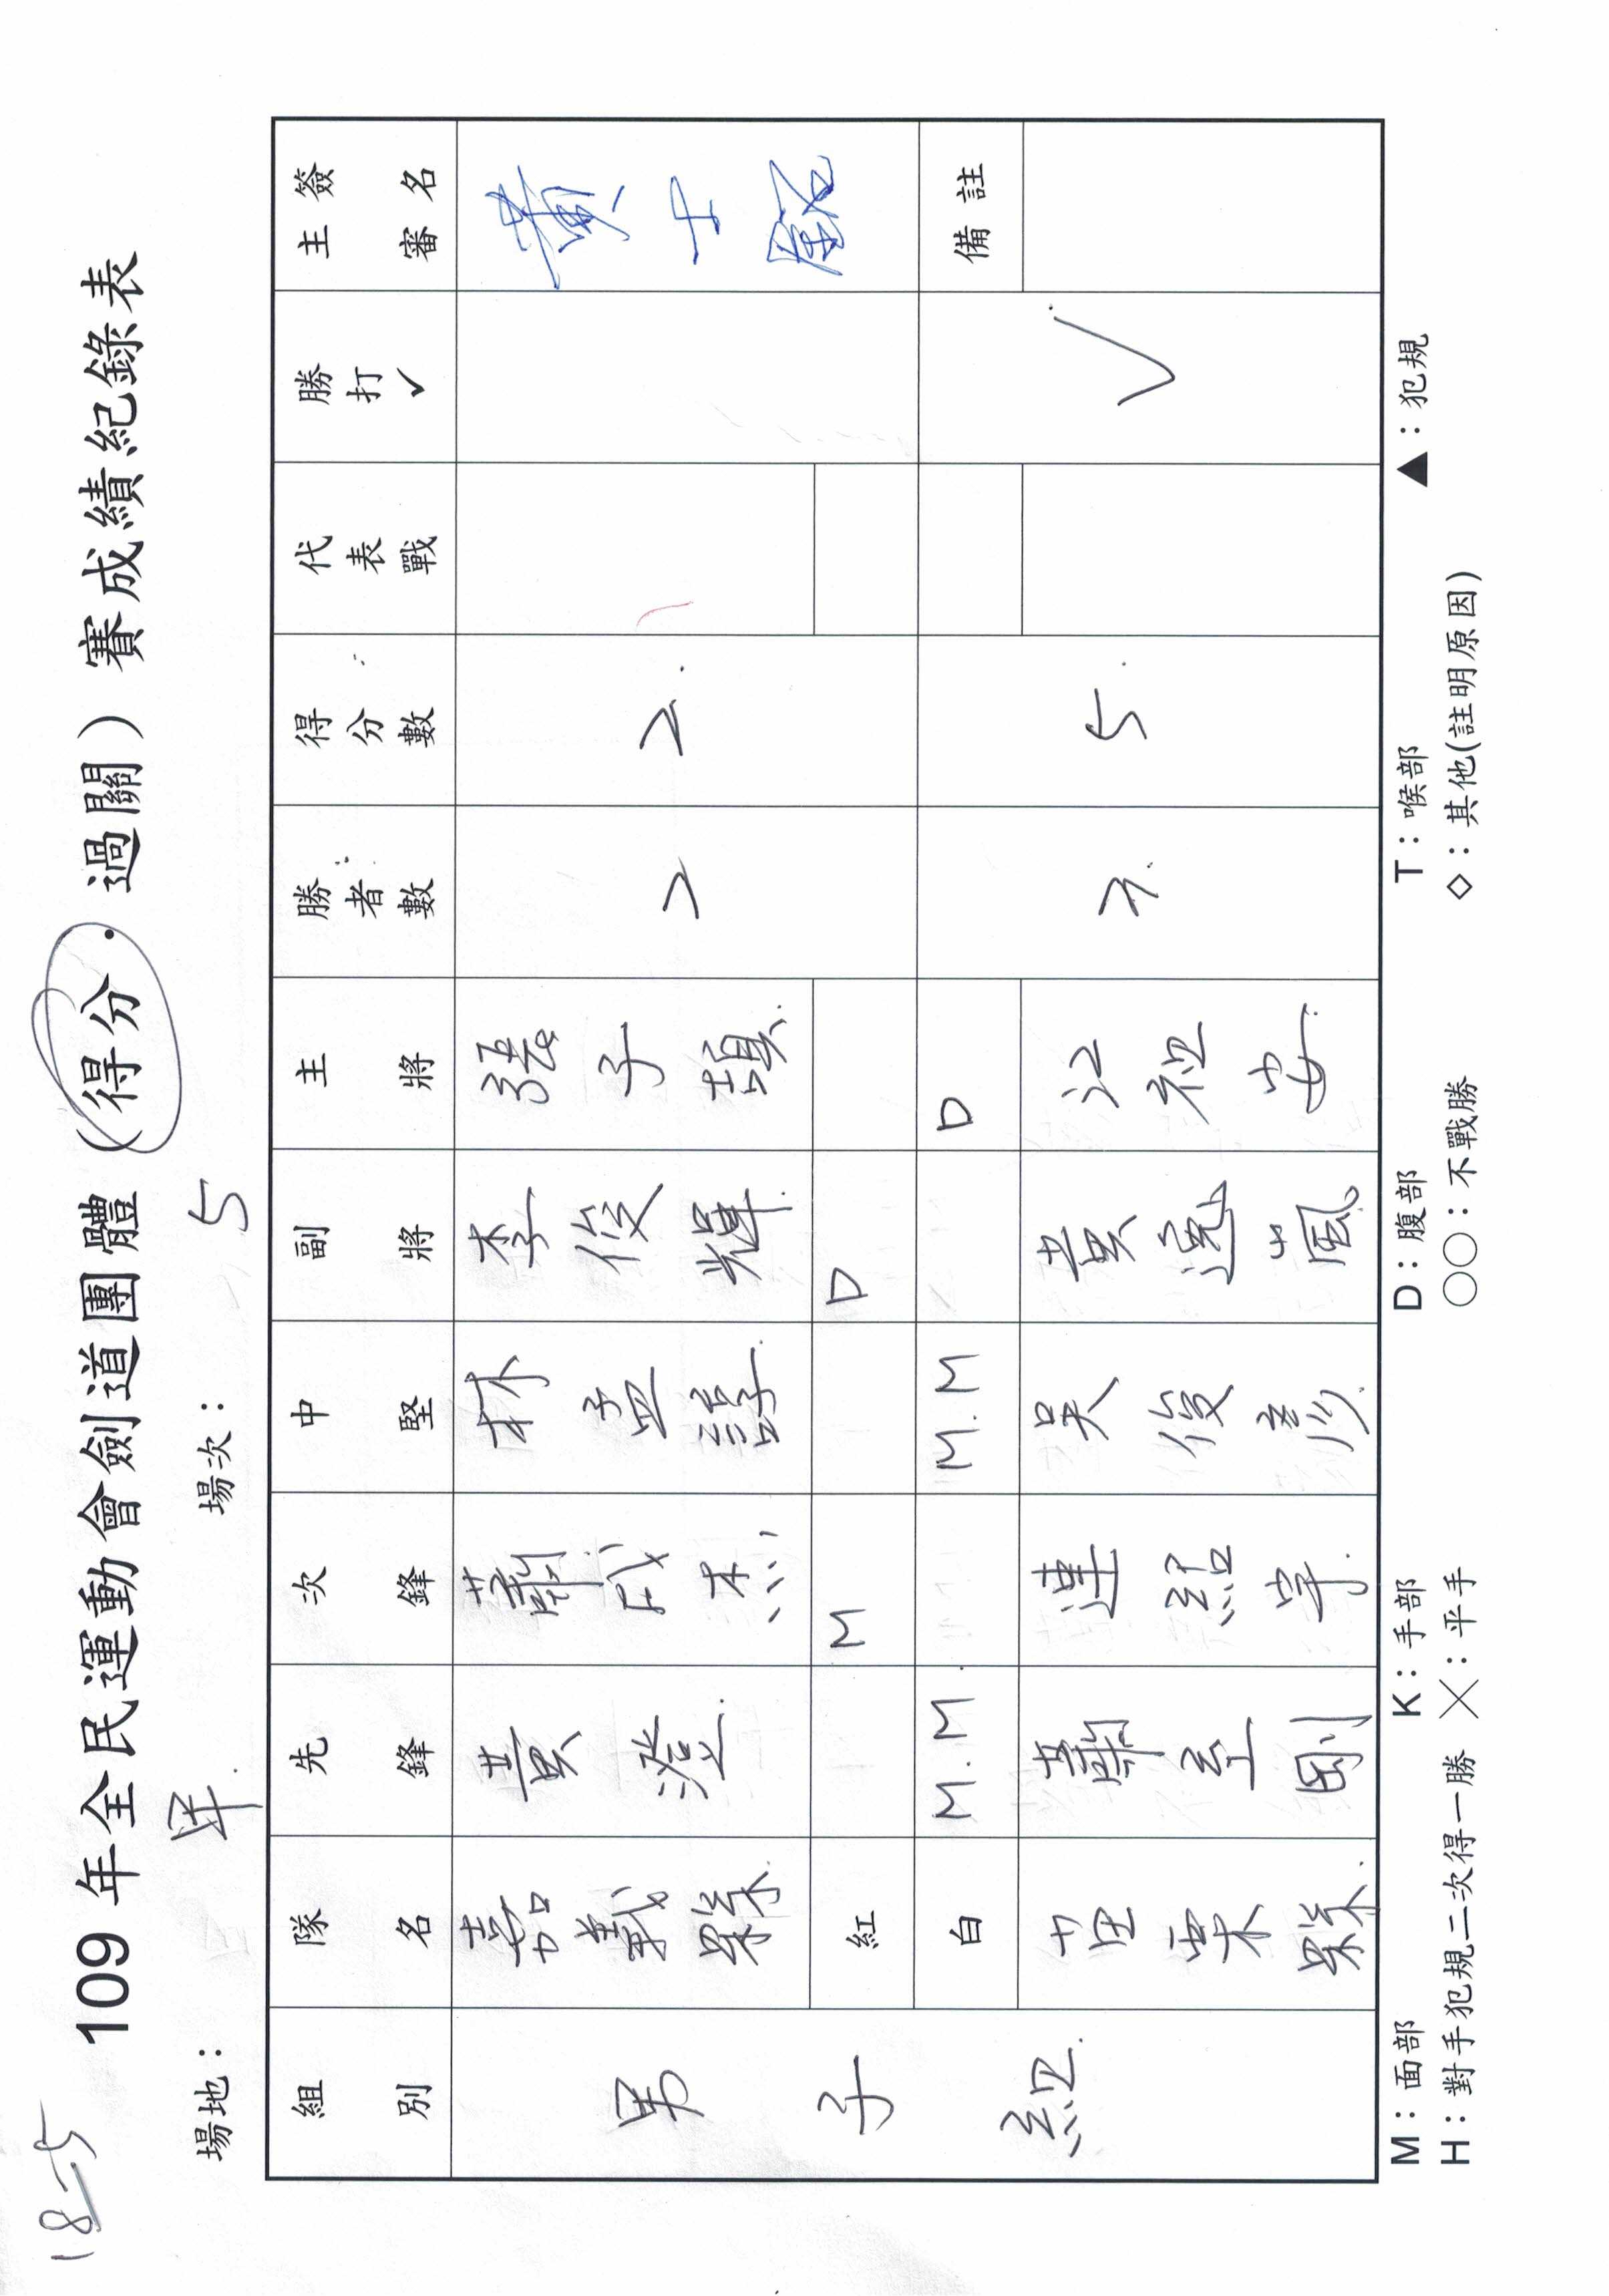 18-5
109 年全民運動會劍道團體（得分．過關）賽成績紀錄表
場地： 場次：5
組別 隊名 先鋒 次鋒 中堅 副將 主將 勝者數 得分數 代表戰 勝打✓ 主審簽名
男子組 嘉義縣 黃澄 蕭成杰 林孟諄 李俊輝 張子 2 2 黃士
紅 M D
白 M.M M.M D 備註
苗栗縣 蕭至剛 連紹宇 吳俊彥 黃逸嵐 江祖安 3 5 ✓
M：面部 K：手部 D：腹部 T：喉部 ▲：犯規
H：對手犯規二次得一勝 ╳：平手 ○○：不戰勝 ◇：其他(註明原因)